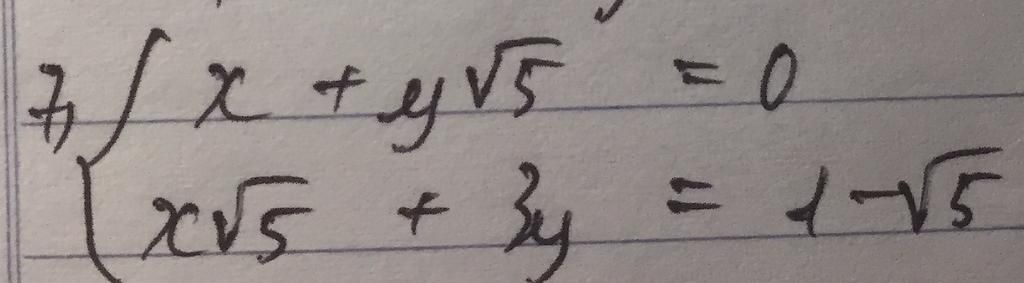 7, { x + y√5 = 0
x√5 + 3y = 1-√5